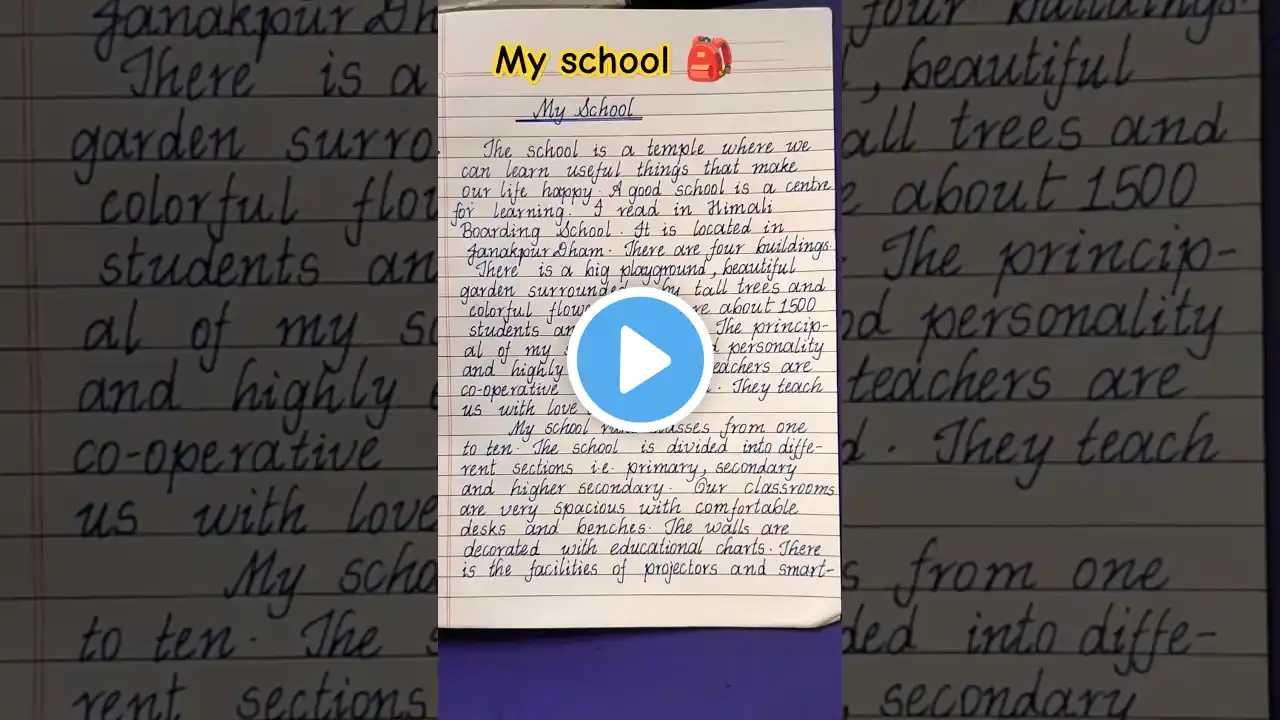 My school
My School
The school is a temple where we
can learn useful things that make
our life happy. A good school is a centre
for learning. I read in Himali
Boarding School. It is located in
Janakpur Dham. There are four buildings.
There is a big playground, beautiful
garden surrounded by tall trees and
colorful about 1500
students The princip-
al of my personality
and highly teachers are
co-operative . They teach
us with love
My school classes from one
to ten. The school is divided into diffe-
rent sections i.e. primary, secondary
and higher secondary. Our classrooms
are very spacious with comfortable
desks and benches. The walls are
decorated with educational charts. There
is the facilities of projectors and smart-